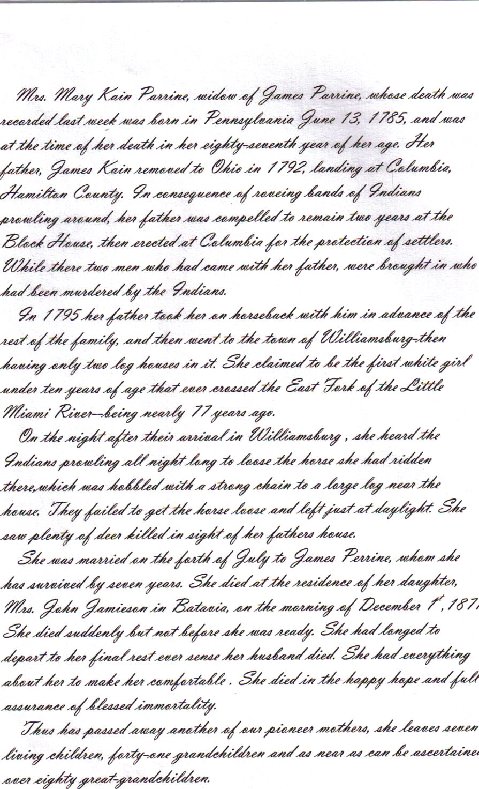 Mrs. Mary Kain Parrine, widow of James Parrine, whose death was
recorded last week was born in Pennsylvania June 13, 1785, and was
at the time of her death in her eighty-seventh year of her age. Her
father, James Kain removed to Ohio in 1792, landing at Columbia,
Hamilton County. In consequence of roveing bands of Indians
prowling around, her father was compelled to remain two years at the
Block House, then erected at Columbia for the protection of settlers.
While there two men who had came with her father, were brought in who
had been murdered by the Indians.
In 1795 her father took her on horseback with him in advance of the
rest of the family, and then went to the town of Williamsburg-then
having only two log houses in it. She claimed to be the first white girl
under ten years of age that ever crossed the East Fork of the Little
Miami River--being nearly 77 years ago.
On the night after their arrival in Williamsburg , she heard the
Indians prowling all night long to loose the horse she had ridden
there,which was hobbled with a strong chain to a large log near the
house. They failed to get the horse loose and left just at daylight. She
saw plenty of deer killed in sight of her fathers house.
She was married on the forth of July to James Perrine, whom she
has survived by seven years. She died at the residence of her daughter,
Mrs. John Jamieson in Batavia, on the morning of December 1st, 187
She died suddenly but not before she was ready. She had longed to
depart to her final rest ever sense her husband died. She had everything
about her to make her comfortable . She died in the happy hope and full
assurance of blessed immortality.
Thus has passed away another of our pioneer mothers, she leaves seven
living children, forty-one grandchildren and as near as can be ascertained
over eighty great-grandchildren.